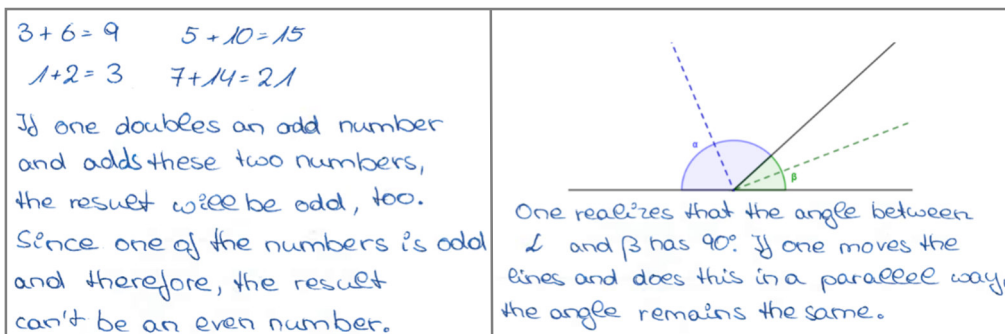 3+6=9 5+10=15
1+2=3 7+14=21
If one doubles an odd number
and adds these two numbers,
the result will be odd, too.
Since one of the numbers is odd
and therefore, the result
can't be an even number.
α
β
One realizes that the angle between
α and β has 90°. If one moves the
lines and does this in a parallel way,
the angle remains the same.